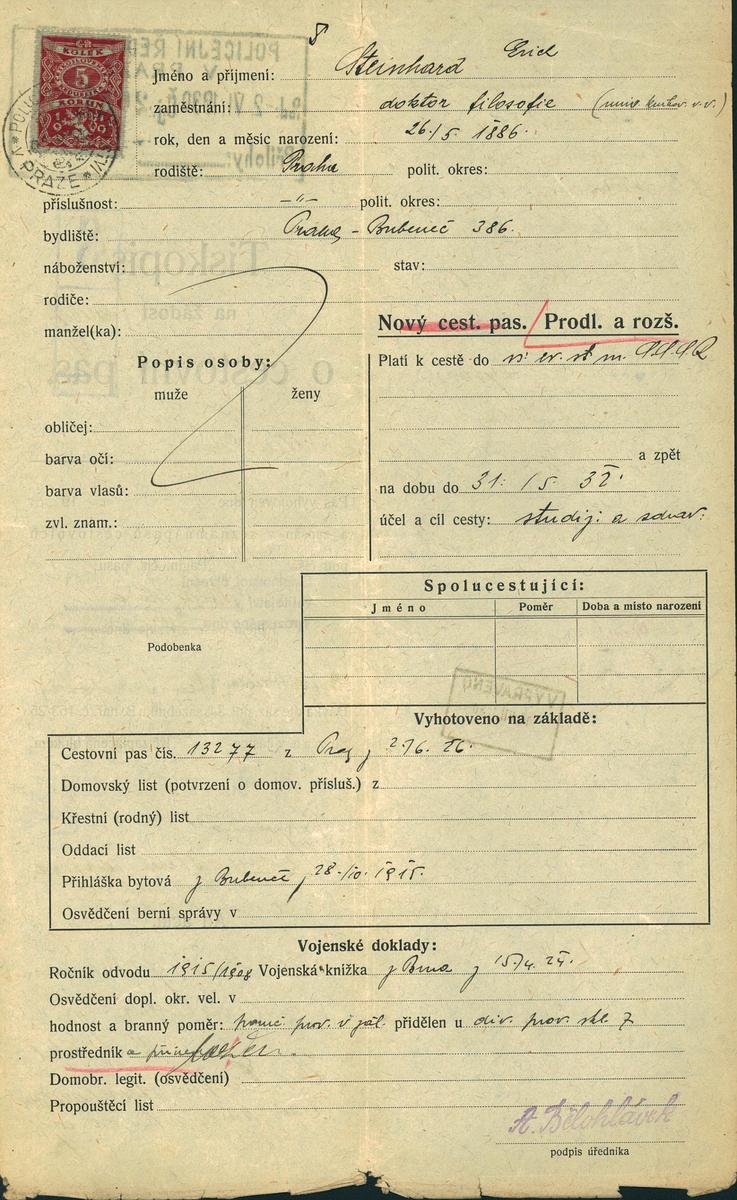 KOLEK
5
KORUN
PRAZE
POLICEJNÍ ŘED
Přílohy:
Jméno a příjmení: Steinhard Erich
zaměstnání: doktor filosofie
rok, den a měsíc narození: 26./5. 1886.
rodiště: Praha polit. okres:
příslušnost: –"– polit. okres:
bydliště: Praha – Bubeneč 386.
náboženství: stav:
rodiče:
manžel(ka):
Nový cest. pas. / Prodl. a rozš.
Popis osoby:
muže ženy
obličej:
barva očí:
barva vlasů:
zvl. znam.:
Platí k cestě do
a zpět
na dobu do 31. /5. 32.
účel a cíl cesty: studij. a
Spolucestující:
Jméno Poměr Doba a místo narození
Podobenka
VYPRAVENO
Vyhotoveno na základě:
Cestovní pas čís. 13277 z 2./6. 26.
Domovský list (potvrzení o domov. přísluš.) z
Křestní (rodný) list
Oddací list
Přihláška bytová z Bubenče, 28./10. 1915.
Osvědčení berní správy v
Vojenské doklady:
Ročník odvodu 1915/1908 Vojenská knížka z Brna z 15/4. 24.
Osvědčení dopl. okr. vel. v
hodnost a branný poměr: prov. v zál. přidělen u div. prov. skl. 7
prostředník a
Domobr. legit. (osvědčení)
Propouštěcí list
A. Bělohlávek
podpis úředníka